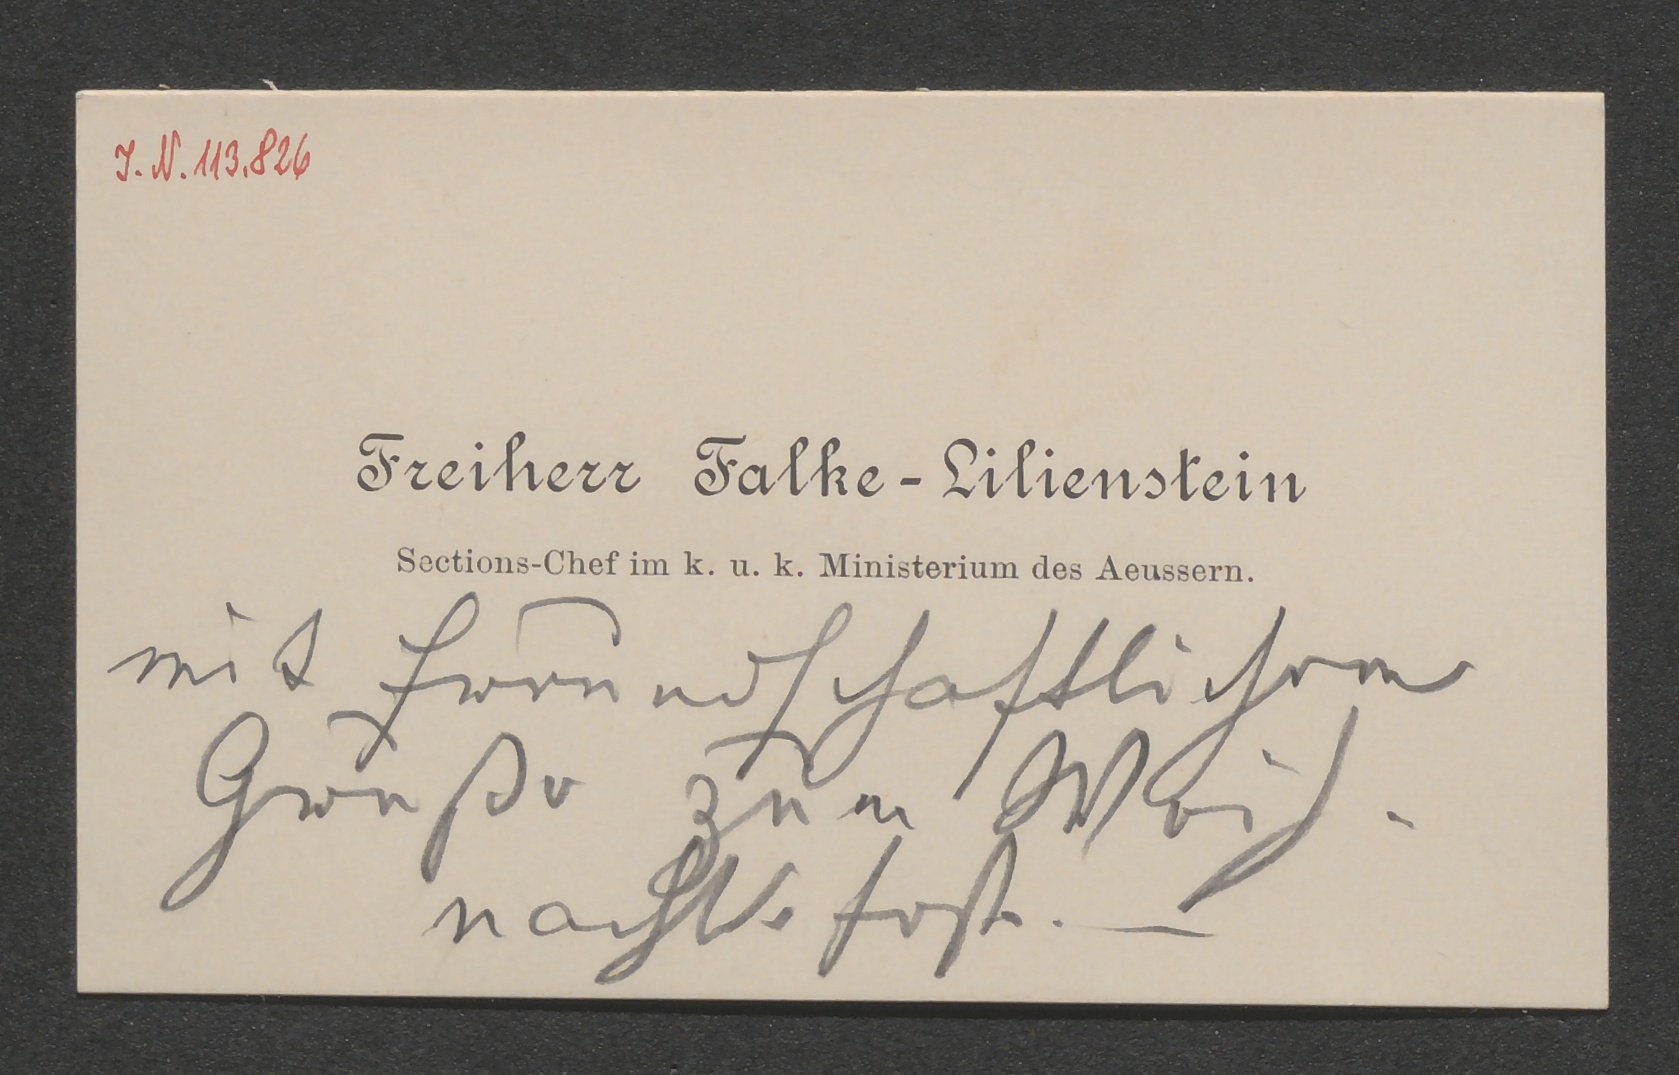 J. N. 113.826
Freiherr Falke-Lilienstein
Sections-Chef im k. u. k. Ministerium des Aeussern.
mit freundschaftlichem
Gruße zum Weih-
nachtsfest. —